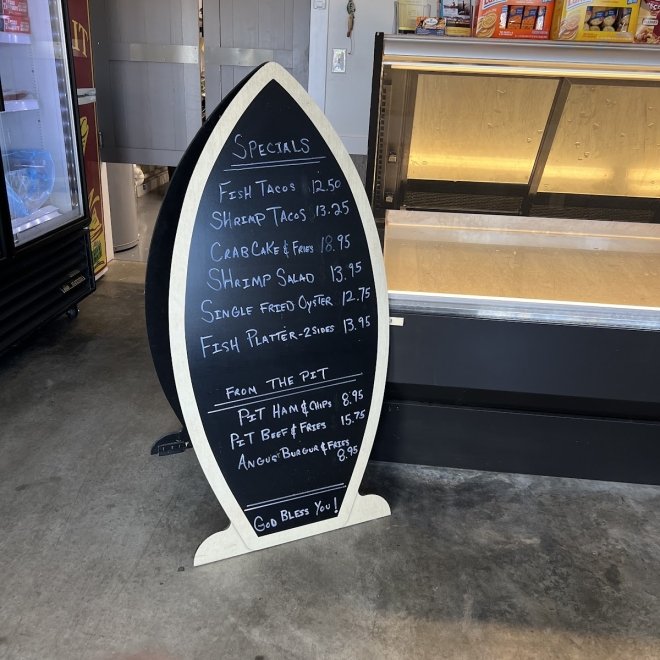 SPECIALS
FISH TACOS 12.50
SHRIMP TACOS 13.25
CRAB CAKE & FRIES 18.95
SHRIMP SALAD 13.95
SINGLE FRIED OYSTER 12.75
FISH PLATTER-2 SIDES 13.95
FROM THE PIT
PIT HAM & CHIPS 8.95
PIT BEEF & FRIES 15.75
ANGUS BURGUR & FRIES
8.95
GOD BLESS YOU!